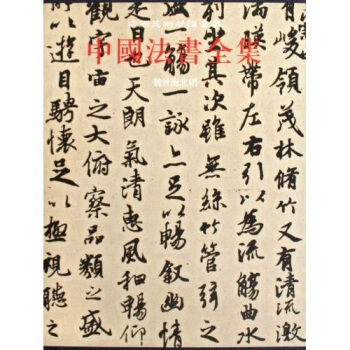 中國美術分類全集
中國法書全集
魏晉南北朝
有峻領茂林脩竹又有清流激
湍暎帶左右引以為流觴曲水
列坐其次雖無絲竹管弦之
盛一觴一詠亦足以暢叙幽情
是日也天朗氣清惠風和暢仰
觀宇宙之大俯察品類之盛
所以遊目騁懷足以極視聽之